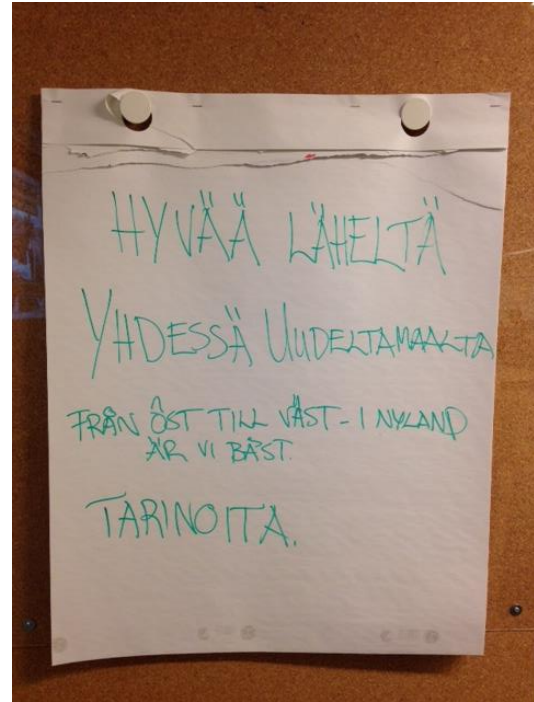 HYVÄÄ LÄHELTÄ
YHDESSÄ UUDELTAMAALTA
FRÅN ÖST TILL VÄST - I NYLAND
ÄR VI BÄST.
TARINOITA.